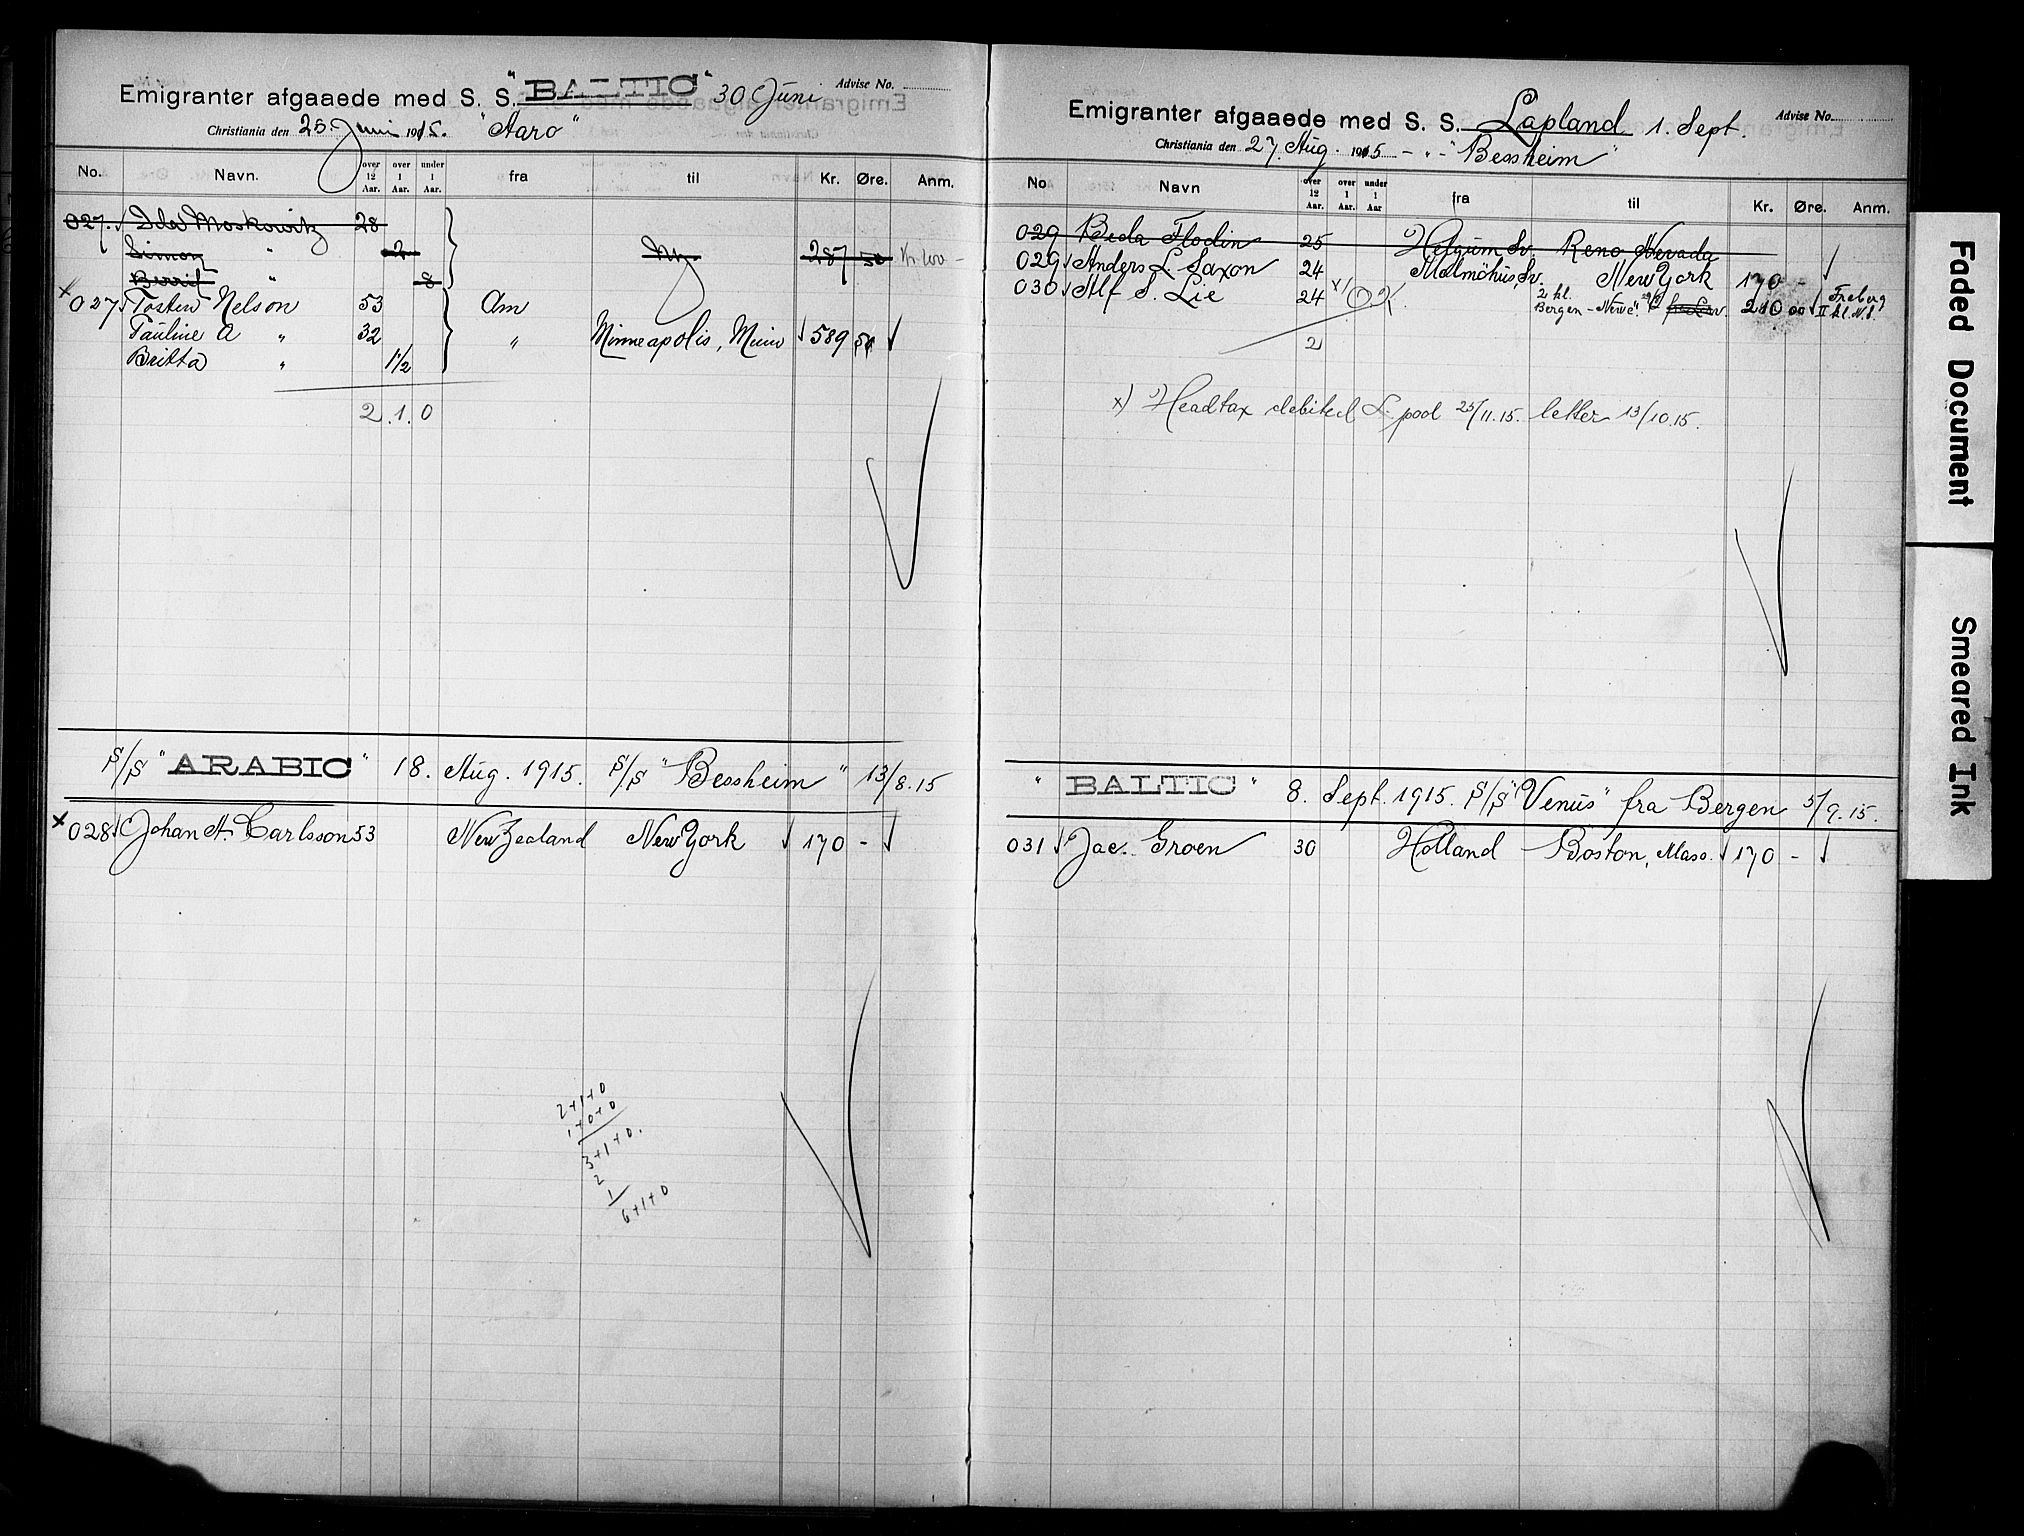 Emigranter afgaaede med S. S. "BALTIC" 30 Juni Advise No.
Christiania den 25. Juni 1915. "Aaro"
No. Navn. over 12 Aar. over 1 Aar. under 1 Aar. fra til Kr. Øre. Anm.
027. Ida Moskowitz 28
Simon " 2 Ny. 287 50
Berrit " 8
x 027 Tosten Nelson 53 Am
Pauline A " 32 " Minneapolis, Minn 589 50
Britta " 1½
2. 1. 0
S/S "ARABIC" 18. Aug. 1915. S/S "Bessheim" 13/8.15
x 028 Johan A. Carlsson 53 New Zealand New York 170 -
2+1+0
1+0+0
3+1+0.
2
1
6+1+0
Emigranter afgaaede med S. S. Lapland 1. Sept. Advise No.
Christiania den 27. Aug. 1915 - " - "Bessheim"
No Navn over 12 Aar. over 1 Aar. under 1 Aar fra til Kr. Øre. Anm.
029 Beda Flodin 25 Helgum Sv. Reno Nevada
029 Anders L. Saxon 24 Malmöhus, Sv. New York 170 -
030 Alf S. Lie 24 x) OK 2 kl. Bergen - Newc. 210 00 Freberg II kl. N.F.
2
x) Headtax debited L-pool 25/11.15. letter 13/10.15.
"BALTIC" 8. Sept. 1915. S/S "Venus" fra Bergen 5/9.15.
031 Jac. Groen 30 Holland Boston, Mass. 170 -
Faded Document
Smeared Ink